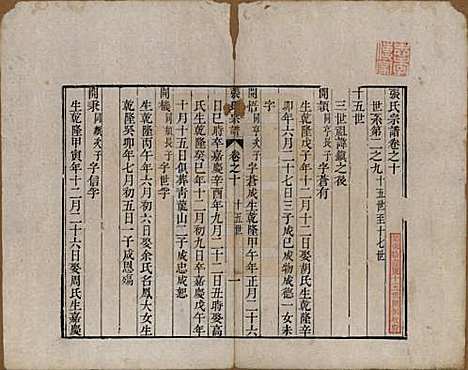 張氏宗譜卷之十
世系第二之九 十五世至十七世
十五世
三世祖諱鎮之後
開頴 同亨 長子 字蒼有
生乾隆戊子年十月十二日娶胡氏生乾隆辛
卯年六月二十七日三子成巳成物成德一女未
字
開梧 同亨次子 字蒼成生乾隆甲午年正月二十六
張氏宗譜 卷之十 十五世 一
日巳時卒嘉慶辛酉年九月二十一日娶高
氏生乾隆癸巳年十二月初九日卒嘉慶戊
十月十五日俱葬青龍山二子成忠成恕
開儀 同 長子 字世孚
生乾隆丙午年六月二日娶余氏名鳳大女生
乾隆癸卯年七月初五日一子成恩殤
開秉 同 次子 字信孚
生乾隆甲寅年十二月二十六日娶周氏生嘉慶